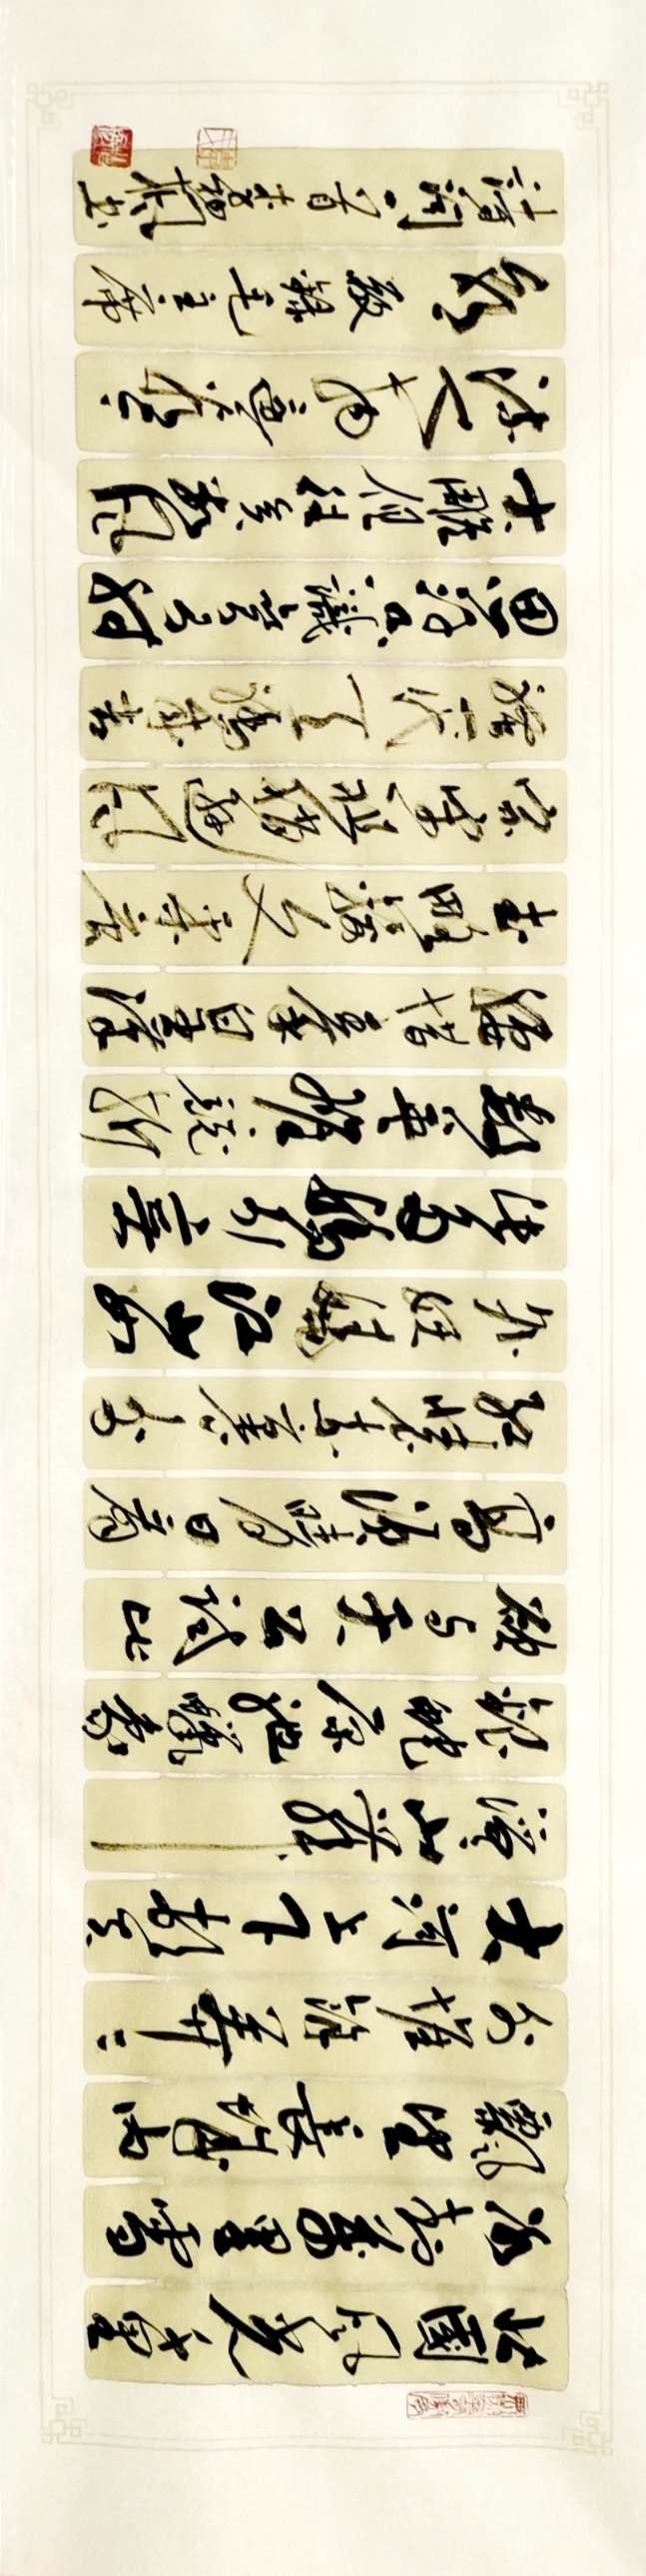 北國風光千里
冰封萬里雪
飄望長城內
外惟餘莽莽
大河上下頓失
滔滔山舞
銀蛇原馳蠟象
欲與天公試比
高須晴日看
紅裝素裹分
外妖嬈江山如
此多嬌引無
數英雄競折
腰惜秦皇漢
武略輸文采唐
宗宋祖稍遜風
騷一代天驕成吉
思汗只識彎弓射
大雕俱往矣數風
流人物還看
今朝 毛主席
詩詞一首 書